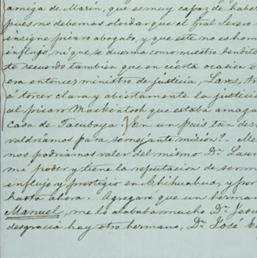 amiga de Marín, que es muy capaz de haber
pues no debemos olvidar que el tral Severo
insigne pícaro abogado, y que este no es hom
influjo, ni que se duerma como nuestro bendito
te acuerdo también que en cierta ocasion e
con entonces ministro de justicia, Lares, tr
á torcer clara y abiertamente la justicia
al pícaro Mackintosh que estaba amaga
casa de Tacubaya. En un país tan des
valdríamos para semejante misión? Me
nos podríamos valer del mismo Dn. Laur
mi poder y tiene la reputacion de ser
influjo y prestigio en Chihuahua, y por
hasta ahora. Agregaré que un herman
Manuel, me lo alababa mucho Dn. Jesu
desgracia hay otro hermano, Dn. José